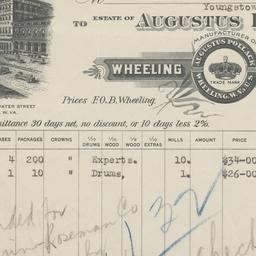 Youngstow
TO ESTATE OF AUGUSTUS
MANUFACTURER OF
WHEELING
AUGUSTUS POLLACK
TRADE MARK
WHEELING, W. VA. U.S.
WATER STREET
W. VA.
Prices F.O.B. Wheeling.
mittance 30 days net, no discount, or 10 days less 2%.
ASES PACKAGES CROWNS 1/10 DRUMS 1/10 WOOD 1/20 WOOD MILLS AMOUNT PRICE
4 200 " Experts. 10. $34-00
1 10 " Drums, 1. $26-00
for
Roseman Co
32
check